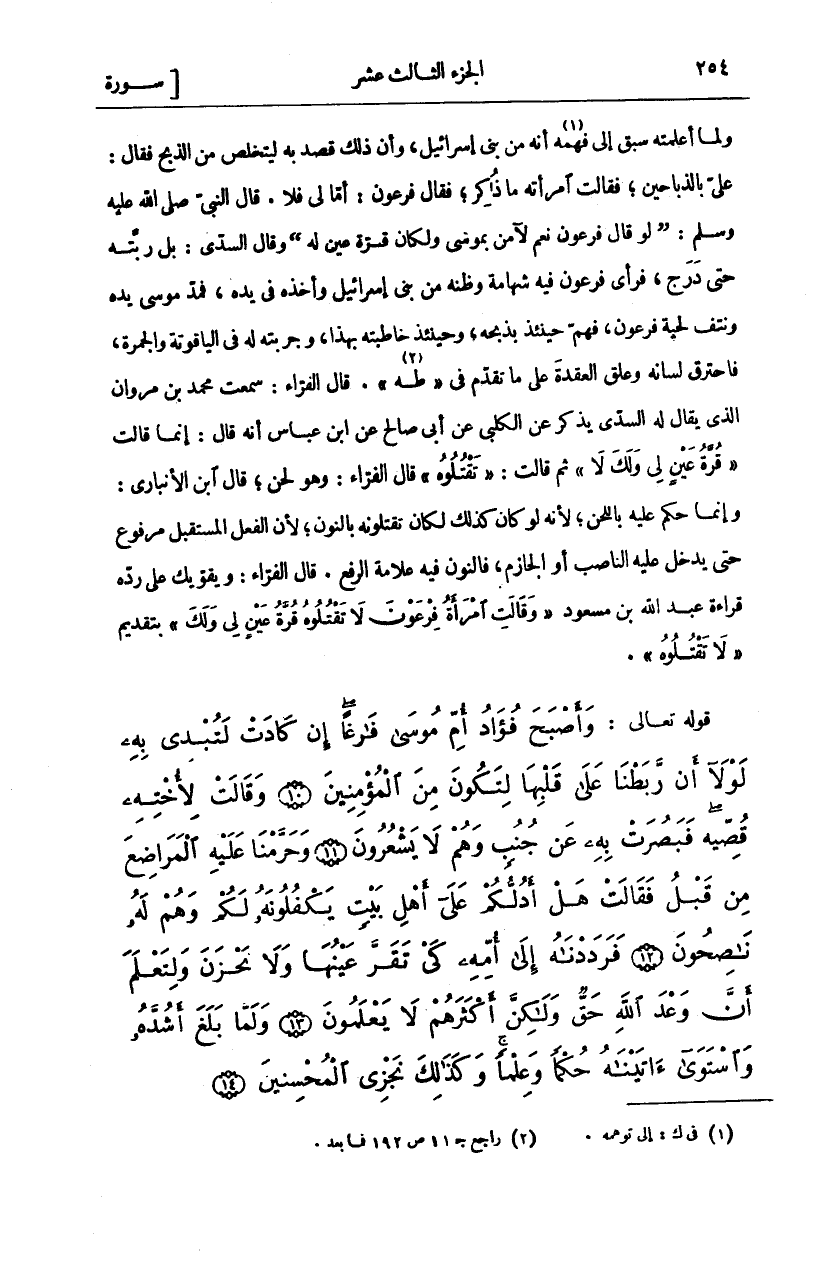 ٢٥٤ الجزء الثالث عشر [ ســورة
ولما أعلمته سبق إلى فهمه (١) أنه من بنى إسرائيل، وأن ذلك قصد به ليتخلص من الذبح فقال :
علىّ بالذباحين ؛ فقالت آمرأته ما ذُكِر ؛ فقال فرعون : أمّا لى فلا . قال النبىّ صلى الله عليه
وسلم : ” لو قال فرعون نعم لآمن بموسى ولكان قرّة عين له “ وقال السدّى : بل ربّته
حتى دَرَج ، فرأى فرعون فيه شهامة وظنه من بنى إسرائيل وأخذه فى يده ، فمدّ موسى يده
ونتف لحية فرعون، فهمّ حينئذ بذبحه، وحينئذ خاطبته بهذا، وجربته له فى الياقوتة والجمرة،
فاحترق لسانه وعلق العقدةَ على ما تقدّم فى « طـه » (٢) . قال الفرّاء : سمعت محمد بن مروان
الذى يقال له السدّى يذكر عن الكلبى عن أبى صالح عن ابن عباس أنه قال : إنما قالت
« قُرَّةُ عَيْنٍ لِى وَلَكَ لَا » ثم قالت : « تَقْتُلُوهُ » قال الفرّاء : وهو لحن ؛ قال آبن الأنبارى :
وإنما حكم عليه باللحن ؛ لأنه لو كان كذلك لكان تقتلونه بالنون ؛ لأن الفعل المستقبل مرفوع
حتى يدخل عليه الناصب أو الجازم، فالنون فيه علامة الرفع . قال الفرّاء : ويقوّيك على ردّه
قراءة عبد الله بن مسعود « وَقَالَتِ ٱمْرَأَةُ فِرْعَوْنَ لَا تَقْتُلُوهُ قُرَّةُ عَيْنٍ لِى وَلَكَ » بتقديم
« لَا تَقْتُلُوهُ » .
قوله تعالى : وَأَصْبَحَ فُؤَادُ أُمِّ مُوسَىٰ فَـٰرِغًا ۖ إِن كَادَتْ لَتُبْدِى بِهِۦ
لَوْلَآ أَن رَّبَطْنَا عَلَىٰ قَلْبِهَا لِتَكُونَ مِنَ ٱلْمُؤْمِنِينَ ١٠ وَقَالَتْ لِأُخْتِهِۦ
قُصِّيهِ ۖ فَبَصُرَتْ بِهِۦ عَن جُنُبٍ وَهُمْ لَا يَشْعُرُونَ ١١ وَحَرَّمْنَا عَلَيْهِ ٱلْمَرَاضِعَ
مِن قَبْلُ فَقَالَتْ هَلْ أَدُلُّكُمْ عَلَىٰٓ أَهْلِ بَيْتٍ يَكْفُلُونَهُۥ لَكُمْ وَهُمْ لَهُۥ
نَـٰصِحُونَ ١٢ فَرَدَدْنَـٰهُ إِلَىٰٓ أُمِّهِۦ كَىْ تَقَرَّ عَيْنُهَا وَلَا تَحْزَنَ وَلِتَعْلَمَ
أَنَّ وَعْدَ ٱللَّهِ حَقٌّ وَلَـٰكِنَّ أَكْثَرَهُمْ لَا يَعْلَمُونَ ١٣ وَلَمَّا بَلَغَ أَشُدَّهُۥ
وَٱسْتَوَىٰٓ ءَاتَيْنَـٰهُ حُكْمًا وَعِلْمًا ۚ وَكَذَٰلِكَ نَجْزِى ٱلْمُحْسِنِينَ ١٤
(١) فى ك : إلى توهمه . (٢) راجع جـ ١١ ص ١٩٢ فما بعد .